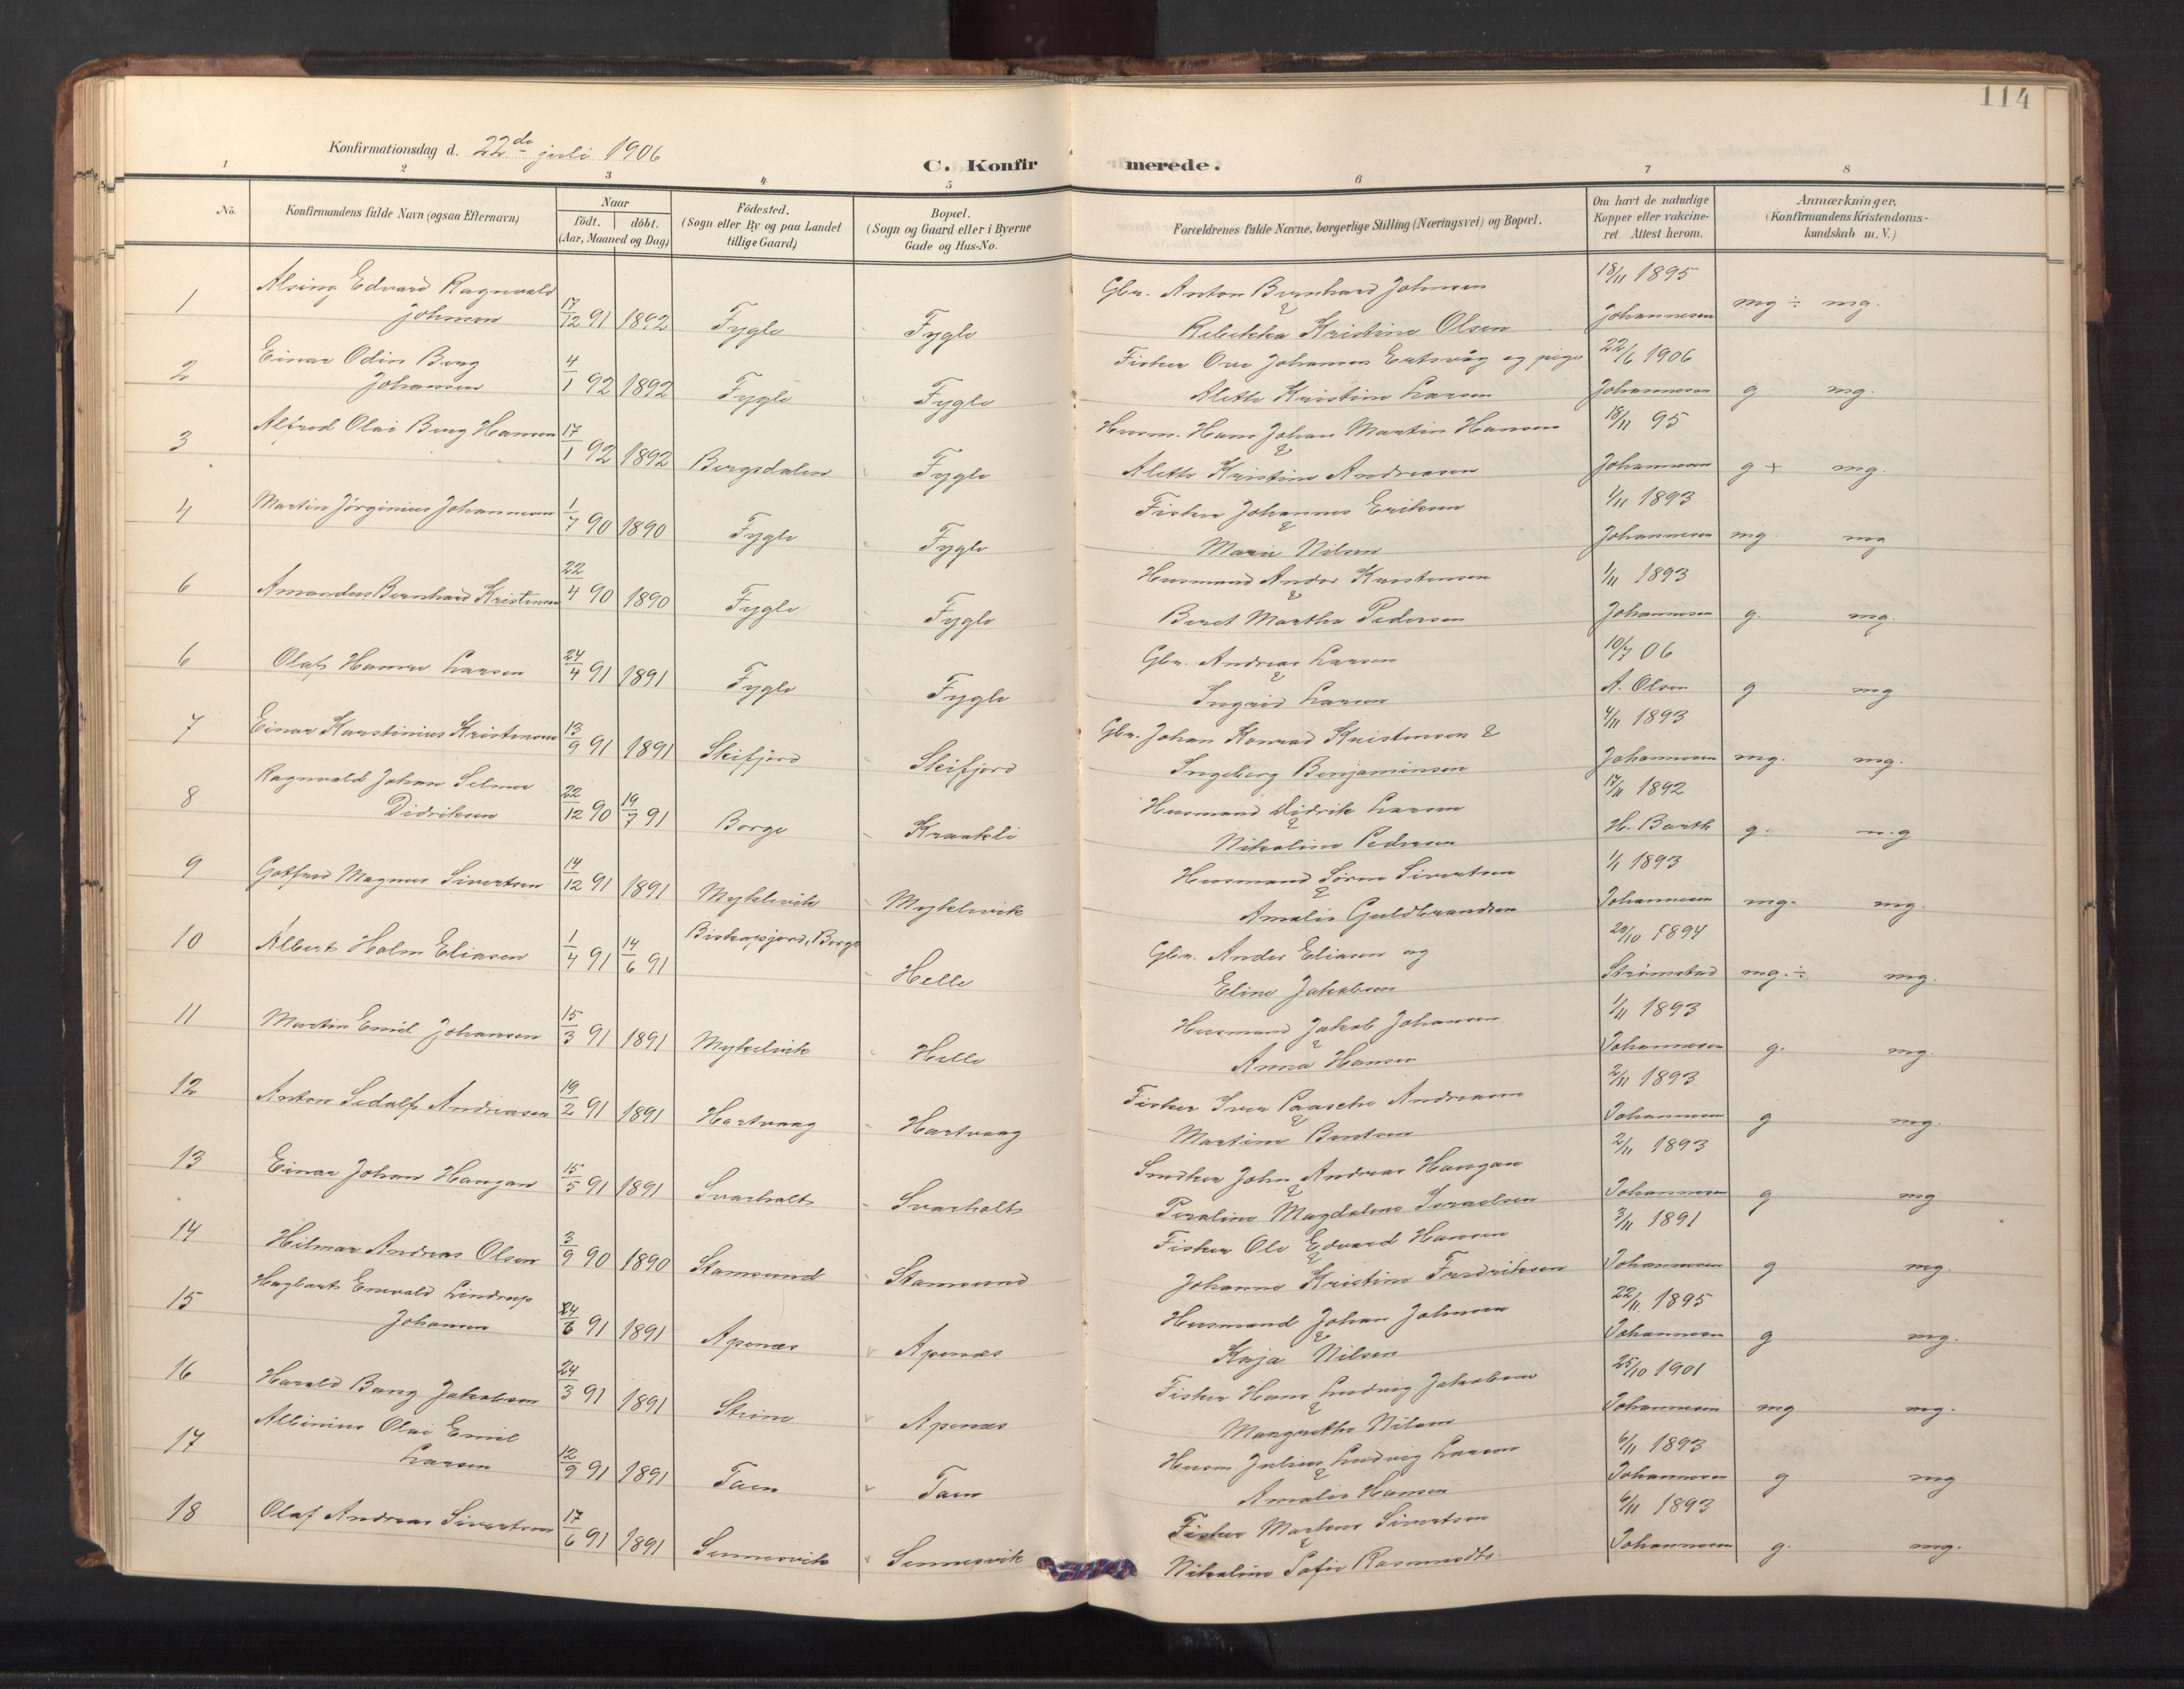 114
Konfirmationsdag d. 22de juli 1906
C. Konfirmerede.
1 2 3 4 5 6 7 8
No.
Konfirmandens fulde Navn (ogsaa Efternavn)
Naar
födt. döbt.
(Aar, Maaned og Dag)
Födested.
(Sogn eller By og paa Landet
tillige Gaard)
Bopæl.
(Sogn og Gaard eller i Byerne
Gade og Hus-No.
Forældrenes fulde Navne, borgerlige Stilling (Næringsvei) og Bopæl.
Om havt de naturlige
Kopper eller vakcine-
ret. Attest herom.
Anmærkninger.
(Konfirmandens Kristendoms-
kundskab m. V.)
1 Edvard Ragnvald Johnsen 17/12 91 1892 Fygle Fygle Gbr. Anton Bernhard Johnsen & Rebekka Kristine Olsen 18/11 1895 Johannesen mg ÷ mg.
2 Einar Odin Berg Johansen 4/1 92 1892 Fygle Fygle Fisker Ove Johansen og pige Alette Kristine Larsen 22/6 1906 Johannesen g mg.
3 Alfred Olai Berg Hansen 17/1 92 1892 Bergsdalen Fygle Husm. Hans Johan Martin Hansen & Alette Kristine Andreasen 18/11 95 Johannesen g + mg.
4 Martin Jörginius Johannesen 1/7 90 1890 Fygle Fygle Fisker Johannes Eriksen & Marie Nilsen 1/11 1893 Johannesen mg. mg
6 Amandus Bernhard Kristensen 22/4 90 1890 Fygle Fygle Husmand Andor Kristensen & Beret Martha Pedersen 1/11 1893 Johannesen g. mg.
6 Olaf Larsen 24/4 91 1891 Fygle Fygle Gbr. Andreas Larsen & Ingrid Larsen 10/7 06 A. Olsen g mg
7 Einar Karstinius Kristensen 13/9 91 1891 Skifjord Skifjord Gbr. Johan Konrad Kristensen & Ingeborg Benjaminsen 4/11 1893 Johannesen mg. mg.
8 Ragnvald Johan Selmer Didriksen 22/12 90 19/7 91 Borge Kraakli Husmand Didrik Larsen & Nikoline Pedersen 17/11 1892 H. Barth g. m.g
9 Gotfred Magnus Sivertsen 14/12 91 1891 Myklevik Myklevik Husmand Sören Sivertsen & Amalie Guldbrandsen 1/1 1893 Johannesen mg. mg.
10 Albert Holm Eliasen 1/4 91 14/6 91 Borge Helle Gbr. Anders Eliasen og Eline Jakobsen 20/10 1894 Strömstad mg. ÷ mg.
11 Martin Emil Johansen 15/3 91 1891 Myklevik Helle Husmand Jakob Johansen & Anna Hansen 1/11 1893 Johannesen g. mg.
12 Anton Sedolf Andreasen 19/2 91 1891 Hartvaag Hartvaag Fisker Iver Paasche Andreasen & Martine Bentsen 2/11 1893 Johannesen g mg.
13 Einar Johan Haugan 15/5 91 1891 Svarholt Svarholt Snedker John Andreas Haugan & Magdalene Israelsen 2/11 1893 Johannesen g mg
14 Hilmar Andreas Olsen 3/9 90 1890 Stamsund Stamsund Fisker Ole Edvard Hansen & Johanne Kristine Fredriksen 3/11 1891 Johannesen g mg.
15 Hagbart Lindrup Johansen 24/6 91 1891 Apenæs Apenæs Husmand Johan Johnsen & Kaja Nilsen 22/11 1895 Johannesen g mg.
16 Harald Bang Jakobsen 24/3 91 1891 Steine Apenæs Fisker Hans Ludvig Jakobsen & Margrethe Nilsen 25/10 1901 Johannesen mg mg.
17 Albinius Olai Emil Larsen 12/9 91 1891 Taen Taen Husm. Julius Ludvig Larsen & Amalie Hansen 6/11 1893 Johannesen g mg
18 Olaf Andreas Sivertsen 17/6 91 1891 Sennesvik Sennesvik Fisker Markus Sivertsen & Nikoline Sofie 6/11 1893 Johannesen g. mg.